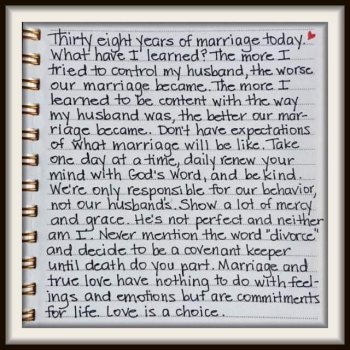 Thirty eight years of marriage today.
What have I learned? The more I
tried to control my husband, the worse
our marriage became. The more I
learned to be content with the way
my husband was, the better our mar-
riage became. Don't have expectations
of what marriage will be like. Take
one day at a time, daily renew your
mind with God's Word, and be kind.
We're only responsible for our behavior,
not our husband's. Show a lot of mercy
and grace. He's not perfect and neither
am I. Never mention the word "divorce"
and decide to be a covenant keeper
until death do you part. Marriage and
true love have nothing to do with feel-
ings and emotions but are commitments
for life. Love is a choice.